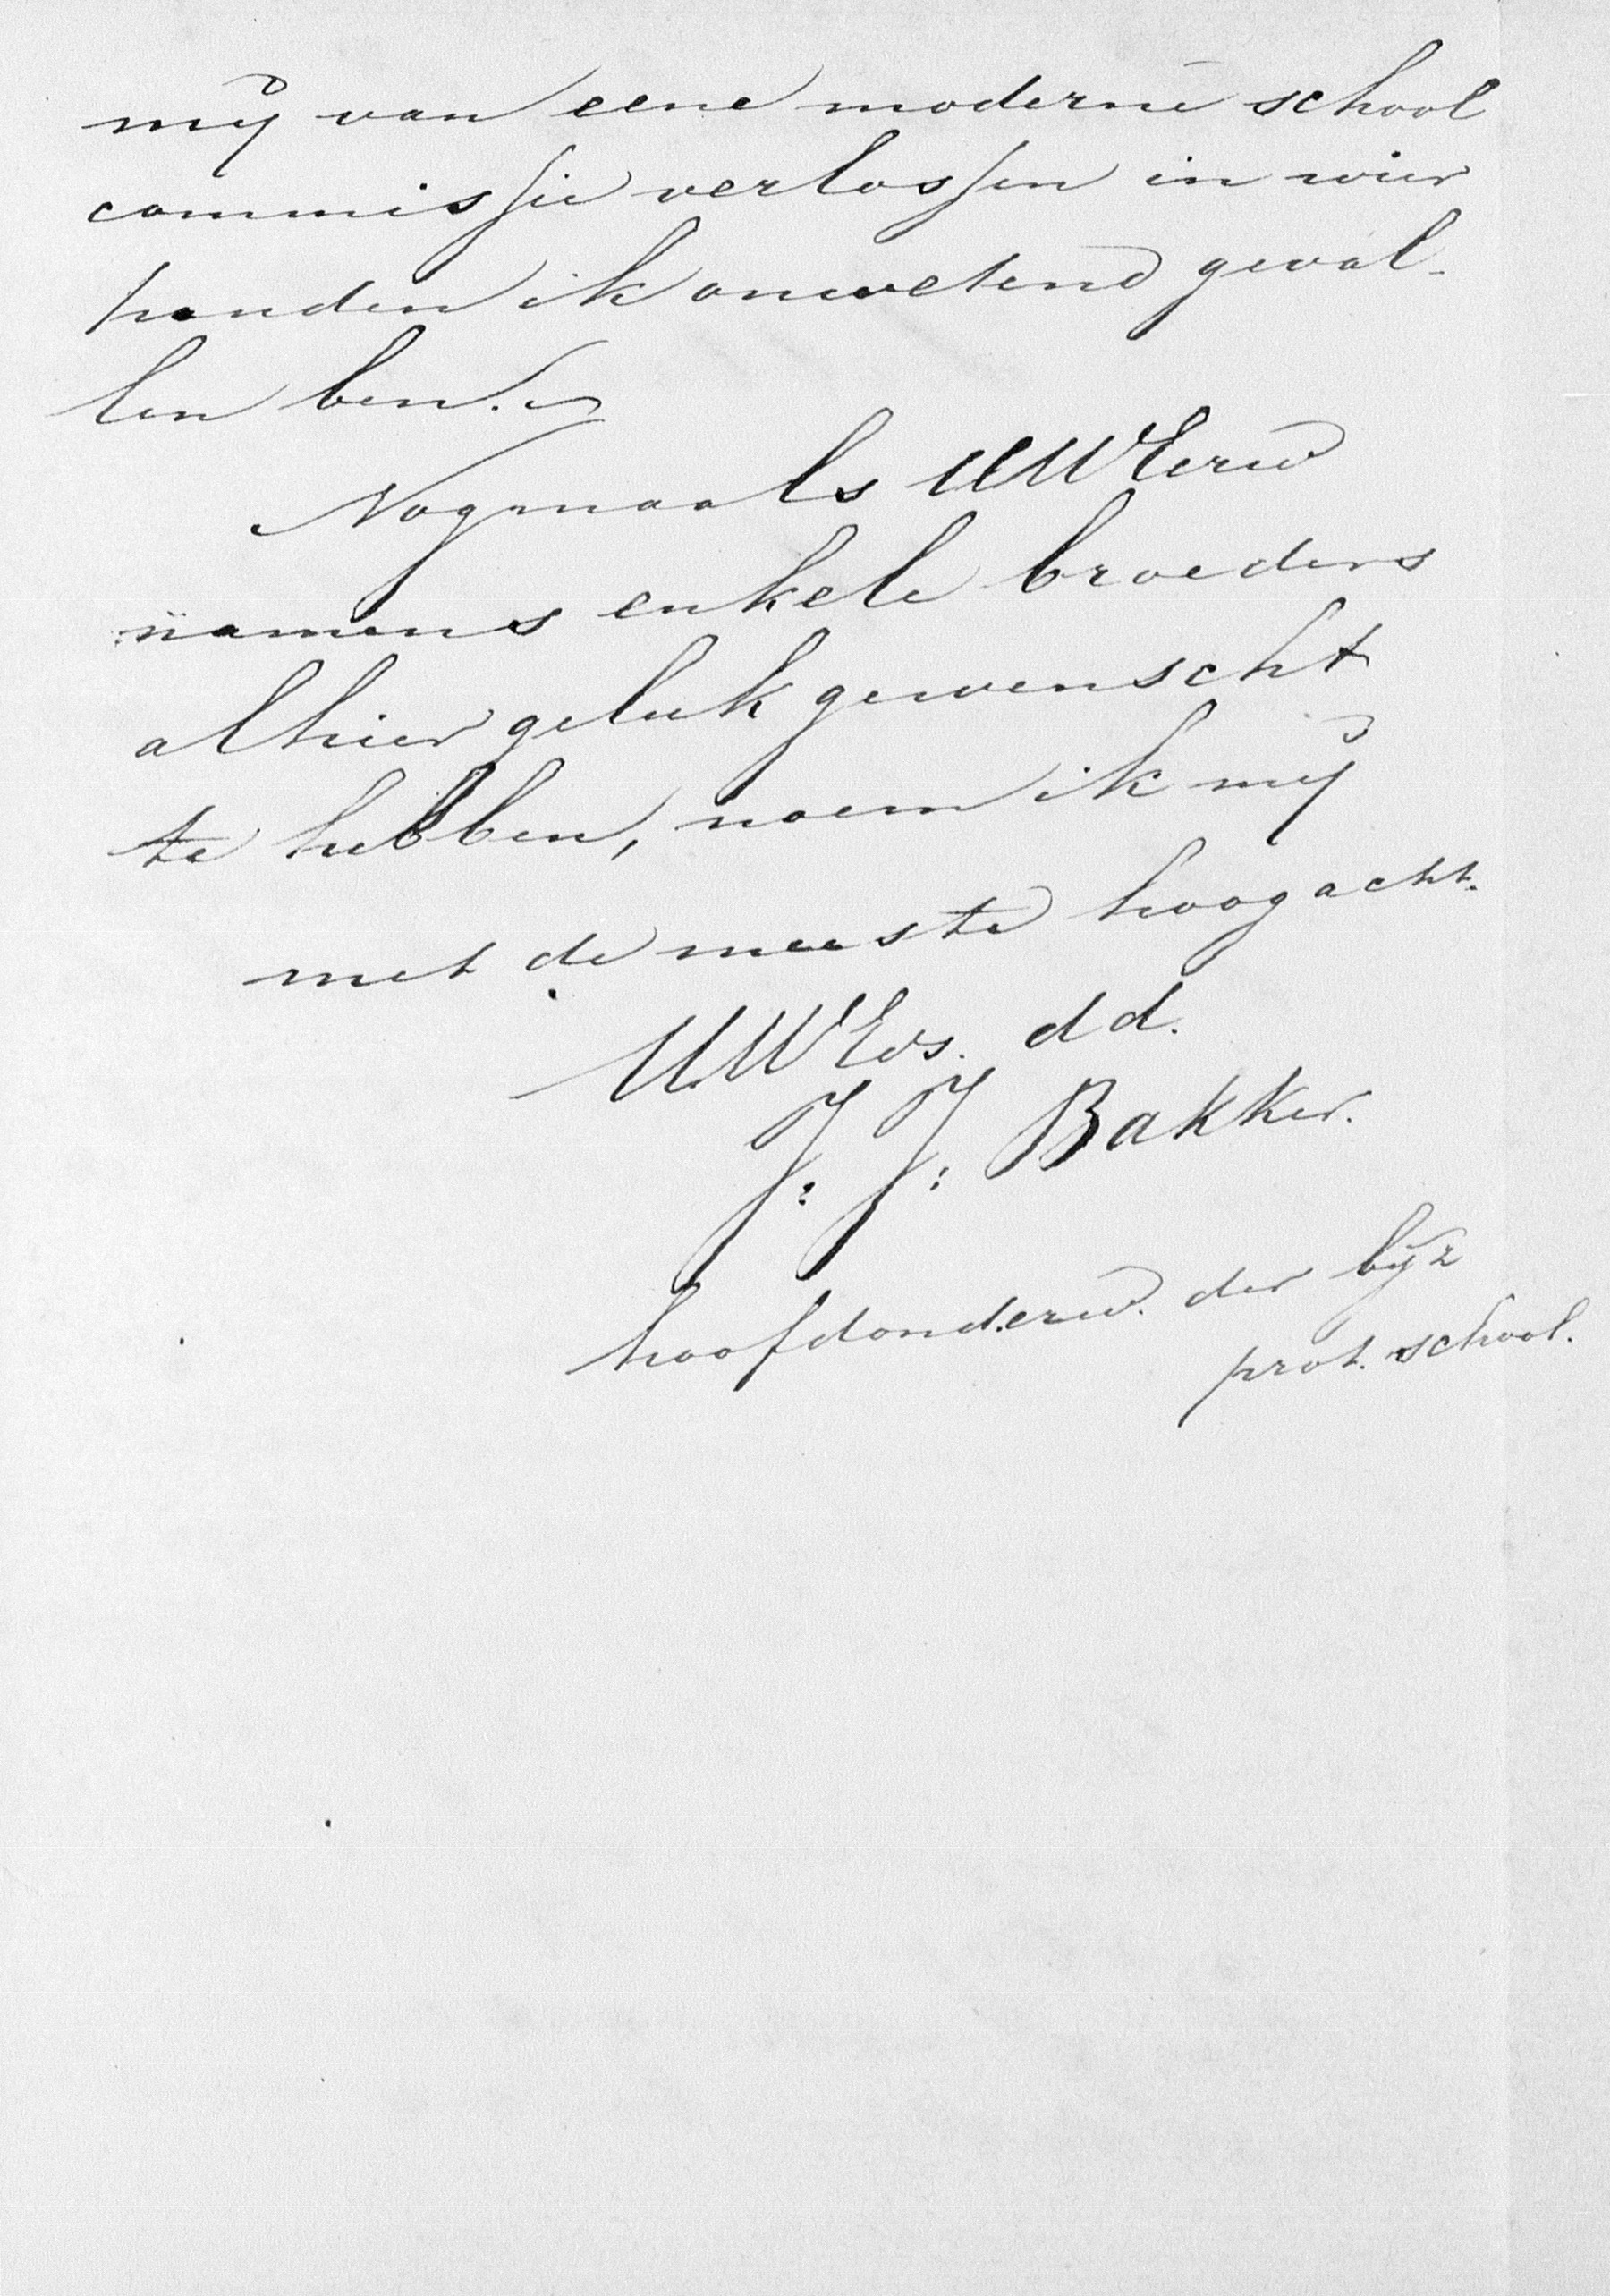 mij van eene moderne school
commissie verlossen in wier
handen ik onwetend geval-
len ben.
Nogmaals UWEerw
namens enkele broeders
alhier geluk gewenscht
te hebben, noem ik mij
met de meeste hoogacht.
UWEws. dd.
J. J. Bakker.
hoofdonderw. der bijz
prot. school.